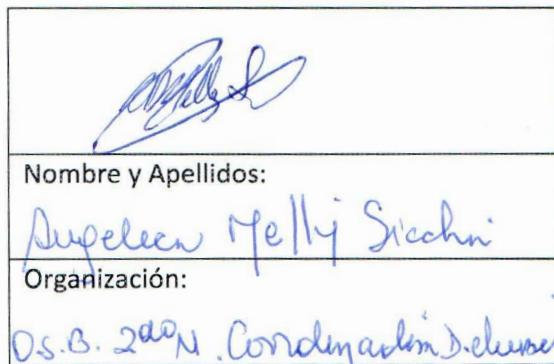 Nombre y Apellidos:
Angelica Melly Sicchi
Organización:
O.S.B. 2do N. Coordinación